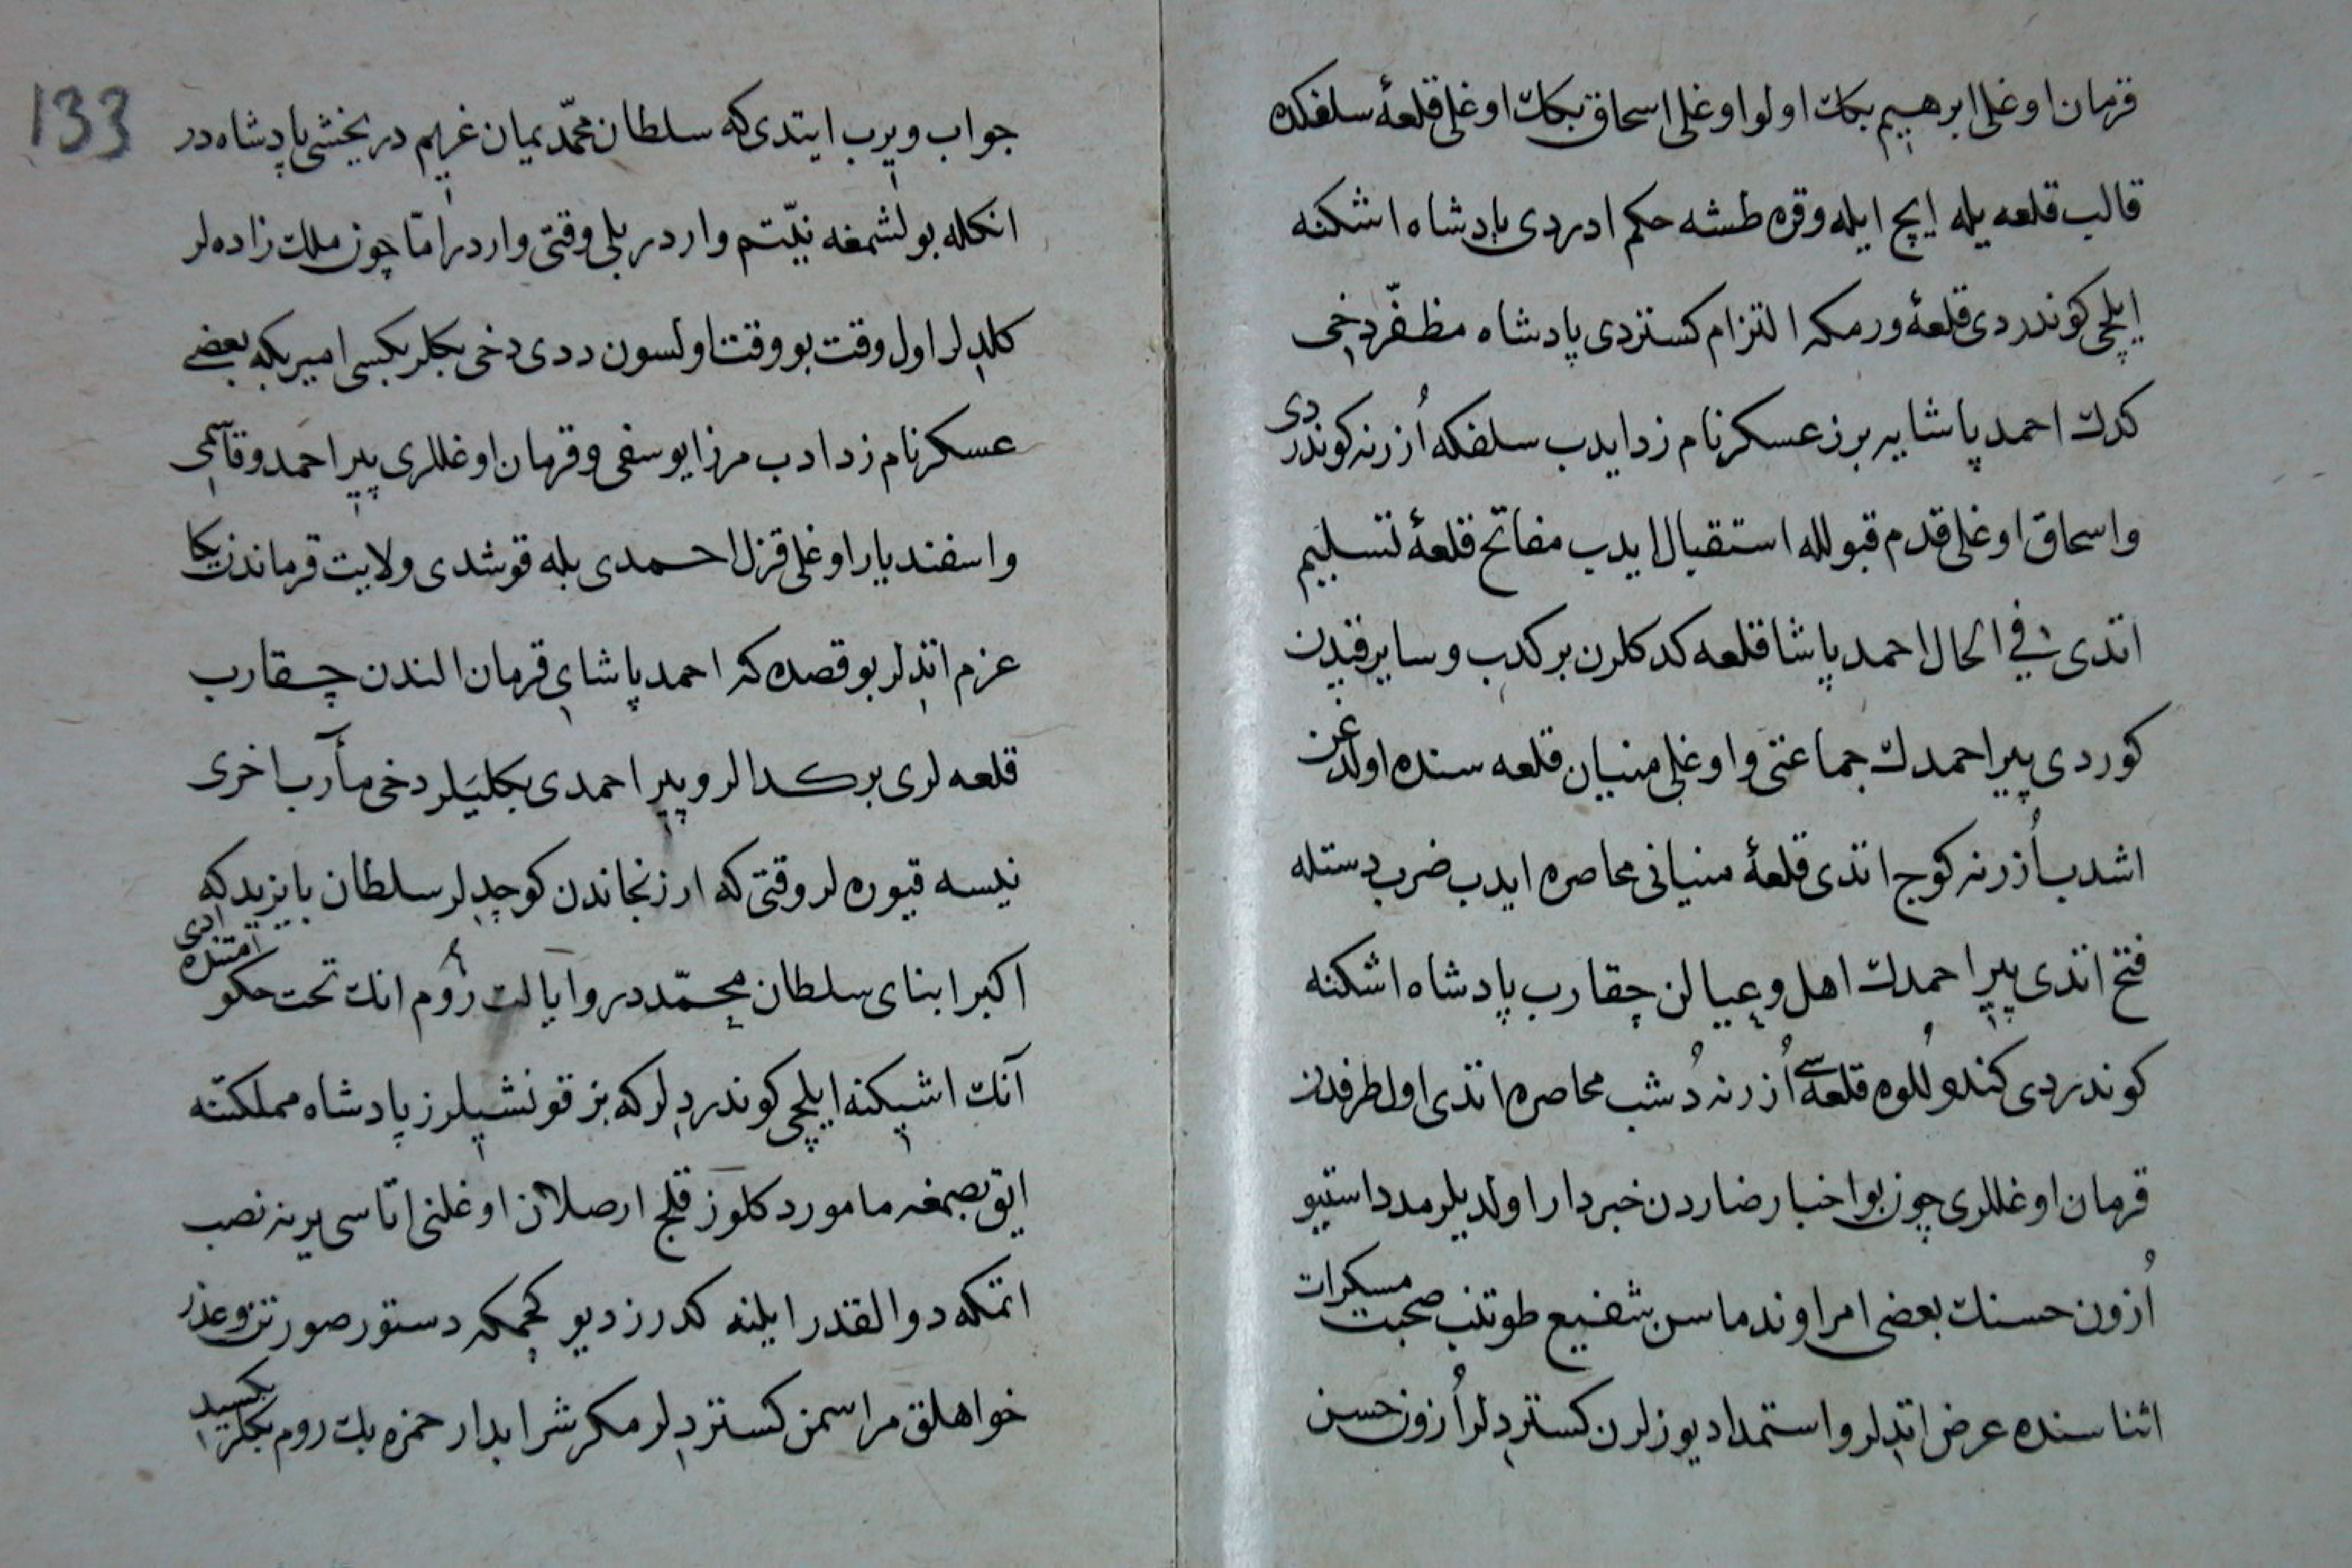 قرمان اوغلی ابرهیم بكك اولو اوغلی اسحاق بكك اوغلی قلعهٔ سلفكده
قالب قلعه یله ایچ ایله وقره طشه حكم ادردی پادشاه اشكنه
ایلچی كوندردی قلعهٔ ورمكه التزام كستردی پادشاه مظفّر دخی
كدك احمد پاشایه برز عسكر نام زد ایدب سلفكه اُزرنه كوندردی
واسحاق اوغلی قدم قبولله استقبال ایدب مفاتح قلعهٔ تسلیم
اتدی فی الحال احمد پاشا قلعه كدكلرن بركدب وسایر قیدن
كوردی پیر احمدك جماعتی واوغلی منیان قلعه سنده اولدغن
اشدب اُزرنه كوچ اتدی قلعهٔ منیانی محاصره ایدب ضرب دستله
فتح اتدی پیر احمدك اهل وعیالن چقارب پادشاه اشكنه
كوندردی كندو لُلوه قلعه سی اُزرنه دُشب محاصره اتدی اول طرفدن
قرمان اوغللری چون بو اخبار ضاردن خبردار اولدیلر مدد استیو
اُزون حسنك بعضی امرا وندماسن شفیع طوتنب صحبت مسكرات
اثناسنده عرض اتدلر واستمداد یوزلرن كستردلر اُزون حسن
133
جواب ویرب ایتدی كه سلطان محمّد یمان غریم در یخشی پادشاه در
انكله بولشمغه نیّتم واردر بلی وقتی واردر امّا چون ملك زاده لر
كلدلر اول وقت بو وقت اولسون ددی دخی بكلر بكسی امیر بكه بعضی
عسكر نام زد ادب مرزا یوسفی وقرمان اوغللری پیر احمد وقاسمی
واسفندیار اوغلی قزل احمدی بله قوشدی ولایت قرماندن یكا
عزم اتدلر بو قصده كه احمد پاشای قرمان الندن چقارب
قلعه لری بركدالر وپیر احمدی بكلیَلر دخی مأرب اخری
نیسه قیوره لر وقتی كه ارزنجاندن كوچدلر سلطان بایزید كه
اكبر ابنای سلطان محمّددر وایالت رُوم انك تحت حكومتنده ادی
آنك اشیكنه ایلچی كوندردلر كه بز قونشیلرز پادشاه مملكتنه
ایق بصمغه مامور دكلوز قلج ارصلان اوغلنی اتاسی یرینه نصب
اتمكه دوالقدر ایلنه كدرز دیو كچمكه دستور صورتن وعذر
خواهلق مراسمن كستردلر مكر شرابدار حمزه بك روم بكلربكسیدی